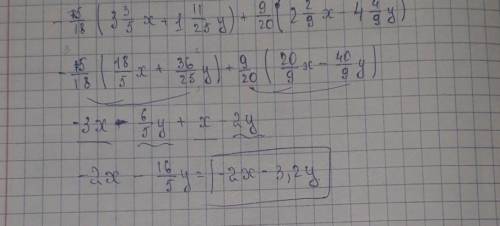 -15/18 (3 3/5 x + 1 11/25 y) + 9/20 (2 2/9 x - 4 4/9 y)
-15/18 (18/5 x + 36/25 y) + 9/20 (20/9 x - 40/9 y)
-3x - 6/5 y + x - 2y
-2x - 16/5 y = -2x - 3,2y